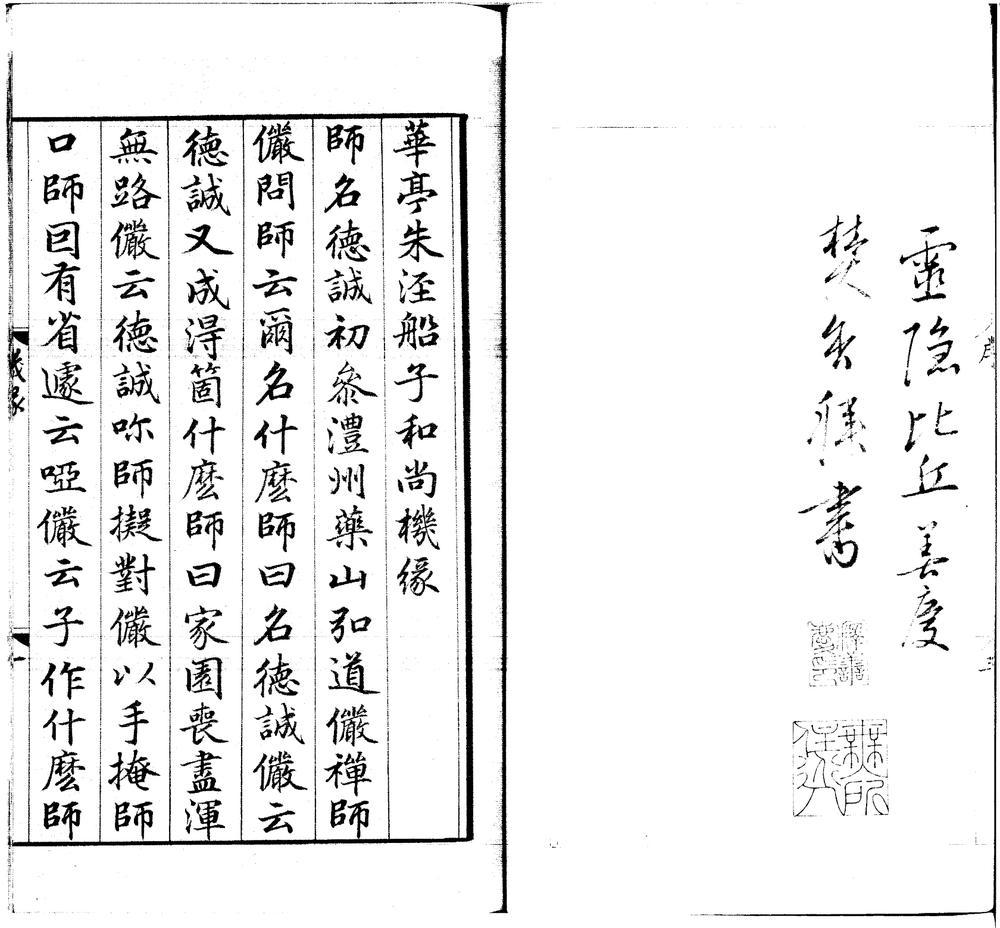 靈隱比丘善慶
焚香拜書
華亭朱涇船子和尚機緣
師名德誠初參澧州藥山弘道儼禪師
儼問師云爾名什麼師曰名德誠儼云
德誠又成得箇什麼師曰家園喪盡渾
無路儼云德誠咻師擬對儼以手掩師
口師囙有省遽云啞儼云子作什麼師
機緣